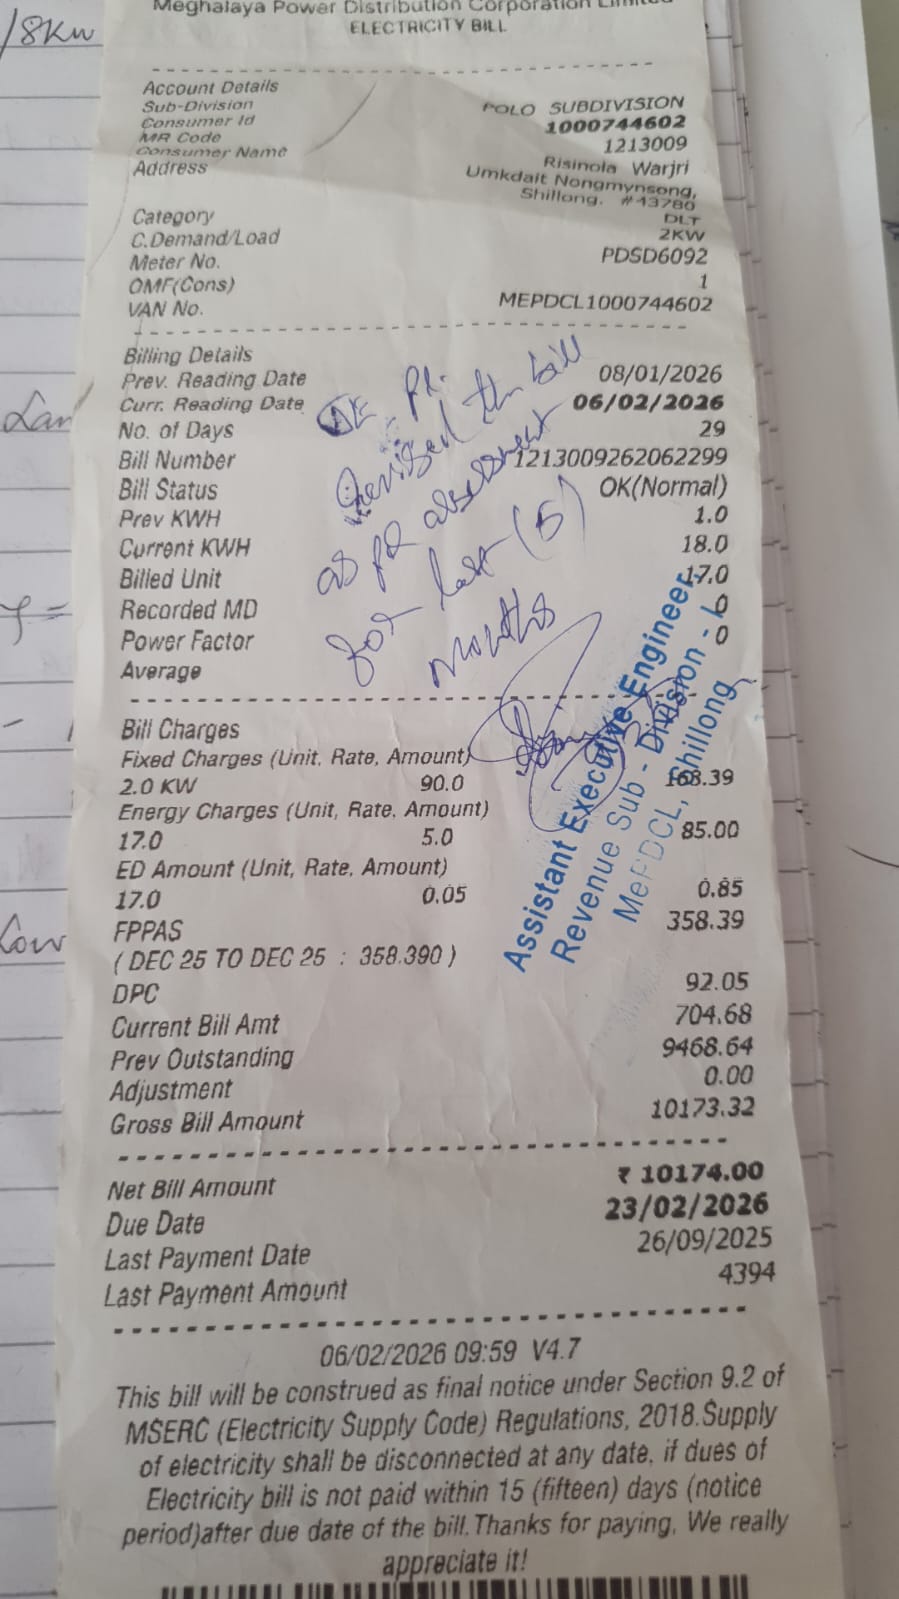 /8Kw
Meghalaya Power Distribution Corporation Limited
ELECTRICITY BILL
Account Details
Sub-Division POLO SUBDIVISION
Consumer Id 1000744602
MR Code 1213009
Consumer Name Risinola Warjri
Address Umkdait Nongmynsong,
Shillong. #43780
Category DLT
C.Demand/Load 2KW
Meter No. PDSD6092
OMF(Cons) 1
VAN No. MEPDCL1000744602
Billing Details
Prev. Reading Date 08/01/2026
Curr. Reading Date 06/02/2026
No. of Days 29
Bill Number 1213009262062299
Bill Status OK(Normal)
Prev KWH 1.0
Current KWH 18.0
Billed Unit 17.0
Recorded MD 0
Power Factor 0
Average
Pl.
revised the bill
as per assessment
for last (5)
months
Assistant Executive Engineer,
Revenue Sub - Division - I
MePDCL, Shillong
Bill Charges
Fixed Charges (Unit, Rate, Amount)
2.0 KW 90.0 168.39
Energy Charges (Unit, Rate, Amount)
17.0 5.0 85.00
ED Amount (Unit, Rate, Amount)
17.0 0.05 0.85
FPPAS 358.39
( DEC 25 TO DEC 25 : 358.390 )
DPC 92.05
Current Bill Amt 704.68
Prev Outstanding 9468.64
Adjustment 0.00
Gross Bill Amount 10173.32
Net Bill Amount ₹ 10174.00
Due Date 23/02/2026
Last Payment Date 26/09/2025
Last Payment Amount 4394
06/02/2026 09:59 V4.7
This bill will be construed as final notice under Section 9.2 of
MSERC (Electricity Supply Code) Regulations, 2018.Supply
of electricity shall be disconnected at any date, if dues of
Electricity bill is not paid within 15 (fifteen) days (notice
period)after due date of the bill.Thanks for paying, We really
appreciate it!